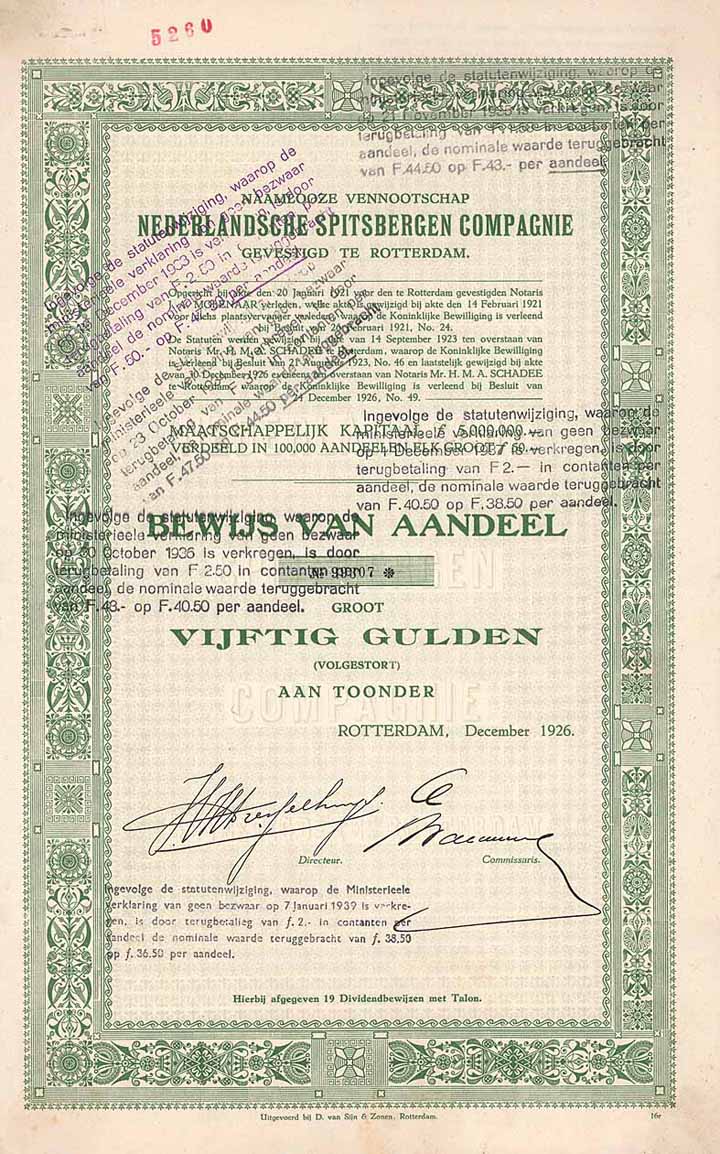 5260
Ingevolge de statutenwijziging, waarop de
door
op 21 November 1935 is verkregen, is door
terugbetaling van F 1.50 in contanten per
aandeel, de nominale waarde teruggebracht
van F.44.50 op F.43.- per aandeel
Ingevolge de statutenwijziging, waarop de
ministerieele verklaring van geen bezwaar
December 1933 is verkregen, is door
terugbetaling van F 2.50 in
aandeel de nominale waarde teruggebracht
van F. 50.- op F. per aandeel
NAAMLOOZE VENNOOTSCHAP
NEDERLANDSCHE SPITSBERGEN COMPAGNIE
GEVESTIGD TE ROTTERDAM.
Opgericht bij akte den 20 Januari 1921 voor den te Rotterdam gevestigden Notaris
MOLENAAR verleden, welke akte is gewijzigd bij akte den 14 Februari 1921
voor diens plaatsvervanger verleden, waarop de Koninklijke Bewilliging is verleend
bij Besluit van Februari 1921, No. 24.
De Statuten werden gewijzigd bij akte van 14 September 1923 ten overstaan van
Notaris Mr. H. M. A. SCHADEE te Rotterdam, waarop de Koninklijke Bewilliging
is verleend bij Besluit van 21 Augustus 1923, No. 46 en laatstelijk gewijzigd bij akte
van 10 December 1926 eveneens ten overstaan van Notaris Mr. H. M. A. SCHADEE
te Rotterdam, waarop de Koninklijke Bewilliging is verleend bij Besluit van
24 December 1926, No. 49.
Ingevolge de
ministerieele
op 23 October
terugbetaling van F 3.-
aandeel, de nominale waarde teruggebracht
van F.47.50 op F.44.50 per aandeel
MAATSCHAPPELIJK KAPITAAL f 5.000.000.—
VERDEELD IN 100,000 AANDEELEN ELK GROOT f 50.—
Ingevolge de statutenwijziging, waarop de
ministerieele verklaring van geen bezwaar
op 1 December 1937 is verkregen, is door
terugbetaling van F 2.— in contanten per
aandeel, de nominale waarde teruggebracht
van F. 40.50 op F. 38.50 per aandeel.
BEWIJS VAN AANDEEL
Ingevolge de statutenwijziging, waarop de
ministerieele verklaring van geen bezwaar
op 30 October 1936 is verkregen, is door
terugbetaling van F 2.50 in contanten per
aandeel, de nominale waarde teruggebracht
van F. 43.- op F. 40.50 per aandeel.
No 99307 *
GROOT
VIJFTIG GULDEN
(VOLGESTORT)
AAN TOONDER
COMPAGNIE
ROTTERDAM, December 1926.
Directeur.
Commissaris.
Ingevolge de statutenwijziging, waarop de Ministerieele
verklaring van geen bezwaar op 7 Januari 1939 is verkre-
gen, is door terugbetalieg van f. 2.- in contanten per
aandeel de nominale waarde teruggebracht van f. 38,50
op f. 36.50 per aandeel.
Hierbij afgegeven 19 Dividendbewijzen met Talon.
Uitgevoerd bij D. van Sijn & Zonen, Rotterdam.
16e